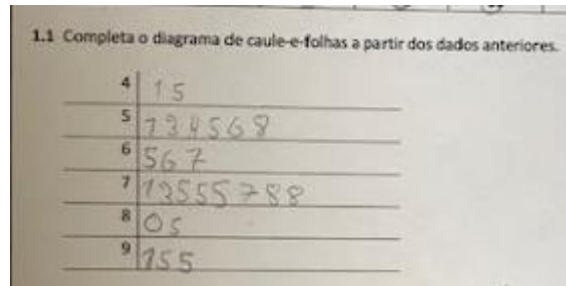 1.1 Completa o diagrama de caule-e-folhas a partir dos dados anteriores.
4 1 5
5 1 3 4 5 6 8
6 5 6 7
7 1 3 5 5 5 7 8 8
8 0 5
9 1 5 5